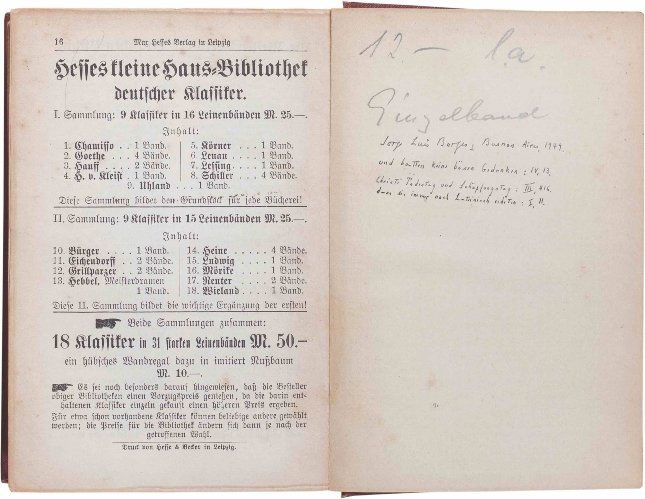 16
Max Hesses Verlag in Leipzig
Hesses kleine Haus-Bibliothek
deutscher Klassiker.
I. Sammlung: 9 Klassiker in 16 Leinenbänden M. 25.—.
Inhalt:
1. Chamisso . . 1 Band.
2. Goethe . . . 4 Bände.
3. Hauff . . . . 2 Bände.
4. H. v. Kleist . 1 Band.
5. Körner . . . 1 Band.
6. Lenau . . . . 1 Band.
7. Lessing . . . 1 Band.
8. Schiller . . . 4 Bände.
9. Uhland . . . 1 Band.
Diese Sammlung bildet den Grundstock für jede Bücherei!
II. Sammlung: 9 Klassiker in 15 Leinenbänden M. 25.—.
Inhalt:
10. Bürger . . . 1 Band.
11. Eichendorff . 2 Bände.
12. Grillparzer . 2 Bände.
13. Hebbel, Meisterdramen
1 Band.
14. Heine . . . . 4 Bände.
15. Ludwig . . . 1 Band.
16. Mörike . . . 1 Band.
17. Reuter . . . 2 Bände.
18. Wieland . . . 1 Band.
Diese II. Sammlung bildet die wichtige Ergänzung der ersten!
Beide Sammlungen zusammen:
18 Klassiker in 31 starken Leinenbänden M. 50.—
ein hübsches Wandregal dazu in imitiert Nußbaum
M. 10.—.
Es sei noch besonders darauf hingewiesen, daß die Besteller
obiger Bibliotheken einen Vorzugspreis genießen, da die darin ent-
haltenen Klassiker einzeln gekauft einen höheren Preis ergeben.
Für etwa schon vorhandene Klassiker können beliebige andere gewählt
werden; die Preise für die Bibliothek ändern sich dann je nach der
getroffenen Wahl.
Druck von Hesse & Becker in Leipzig.
12.— l.a.
Einzelband
Jorge Luis Borges, Buenos Aires, 1974.
und hatten keine bösen Gedanken: IV, 13.
Christi Todestag und Schöpfungstag: III, 416.